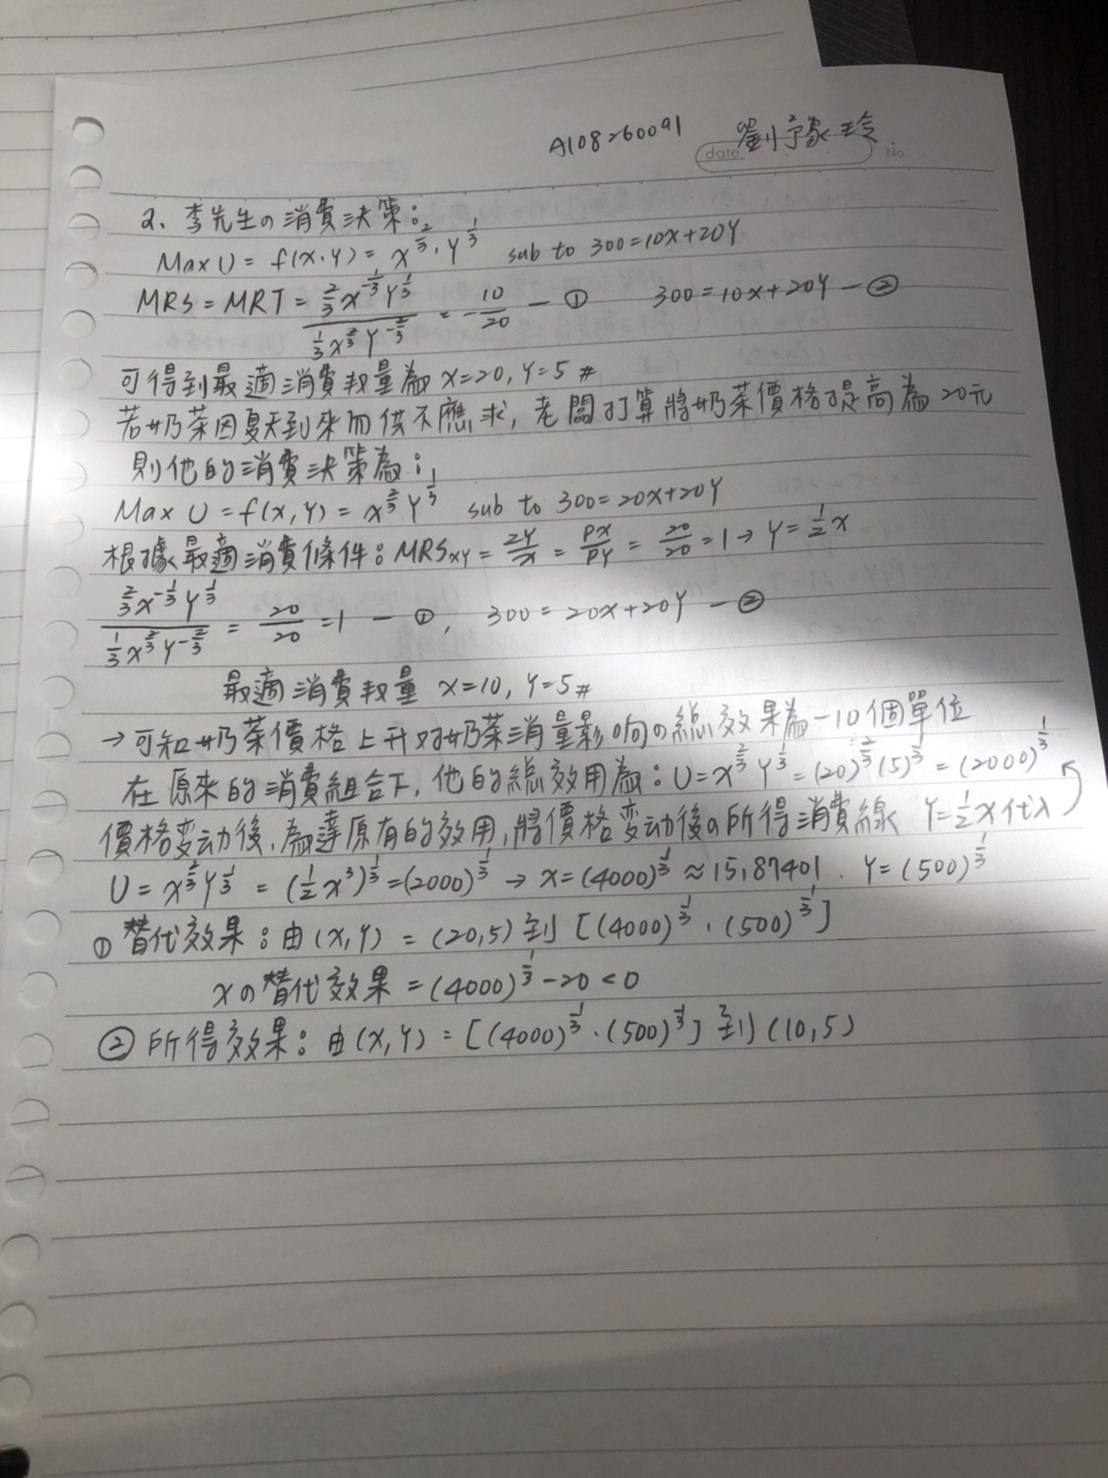 A108260091 劉予豙玲
date No.
2、李先生の消費決策:
Max U = f(x,y) = x^{2/3}·y^{1/3} sub to 300=10x+20y
MRS = MRT = \frac{2/3 x^{-1/3} y^{1/3}}{1/3 x^{2/3} y^{-2/3}} = -10/20 — ① 300=10x+20y — ②
可得到最適消費數量為 x=20, y=5 #
若奶茶因夏天到來而供不應求, 老闆打算將奶茶價格提高為20元
則他的消費決策為:
Max U = f(x,y) = x^{2/3} y^{1/3} sub to 300=20x+20y
根據最適消費條件: MRSxy = 2y/x = Px/Py = 20/20 = 1 → y = 1/2 x
\frac{2/3 x^{-1/3} y^{1/3}}{1/3 x^{2/3} y^{-2/3}} = 20/20 = 1 — ①, 300 = 20x+20y — ②
最適消費數量 x=10, y=5 #
→ 可知奶茶價格上升對奶茶消量影响の總效果為 -10個單位
在原來的消費組合下, 他的總效用為: U = x^{2/3} y^{1/3} = (20)^{2/3} (5)^{1/3} = (2000)^{1/3}
價格变动後, 為達原有的效用, 將價格变动後の所得消費線 y = 1/2 x 代入
U = x^{2/3} y^{1/3} = (1/2 x^3)^{1/3} = (2000)^{1/3} → x = (4000)^{1/3} ≈ 15,87401 . y = (500)^{1/3}
① 替代效果: 由(x,y) = (20,5) 到 [(4000)^{1/3} , (500)^{1/3}]
xの替代效果 = (4000)^{1/3} - 20 < 0
② 所得效果: 由(x,y) = [(4000)^{1/3} . (500)^{1/3}] 到 (10,5)